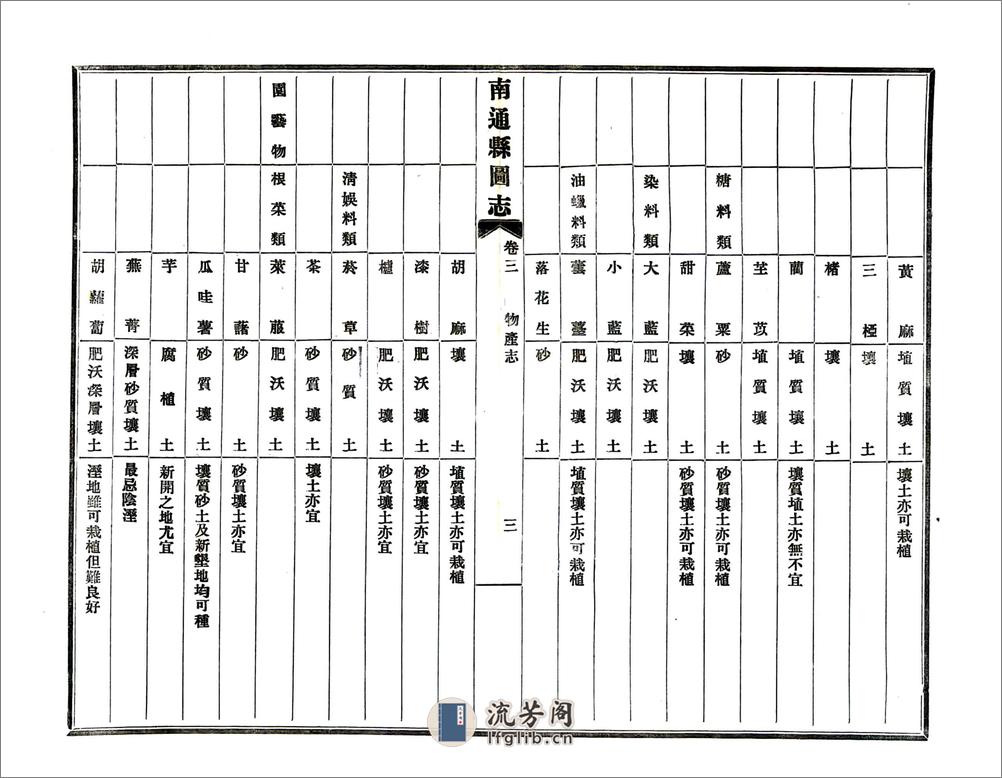 黃麻 埴質壤土 壤土亦可栽植
三椏 壤土
楮 壤土
藺 埴質壤土 壤質埴土亦無不宜
芏苡 埴質壤土
糖料類 蘆粟 砂土 砂質壤土亦可栽植
甜菜 壤土 砂質壤土亦可栽植
染料類 大藍 肥沃壤土
小藍 壤土
油蠟料類 蕓薹 肥沃壤土 埴質壤土亦可栽植
落花生 砂土
南通縣圖志 卷三 物產志 三
胡麻 壤土 埴質壤土亦可栽植
漆樹 肥沃壤土 砂質壤土亦宜
櫨 肥沃壤土 砂質壤土亦宜
清娛料類 菸草 砂質土
茶 砂質壤土 壤土亦宜
園藝物 根菜類 萊菔 肥沃壤土
甘藷 砂土 砂質壤土亦宜
瓜哇薯 砂質壤土 壤質砂土及新墾地均可種
芋 腐植土 新開之地尤宜
蕪菁 深層砂質壤土 最忌陰溼
胡蘿蔔 肥沃深層壤土 溼地雖可栽植但難良好
流芳阁
lfglib.cn